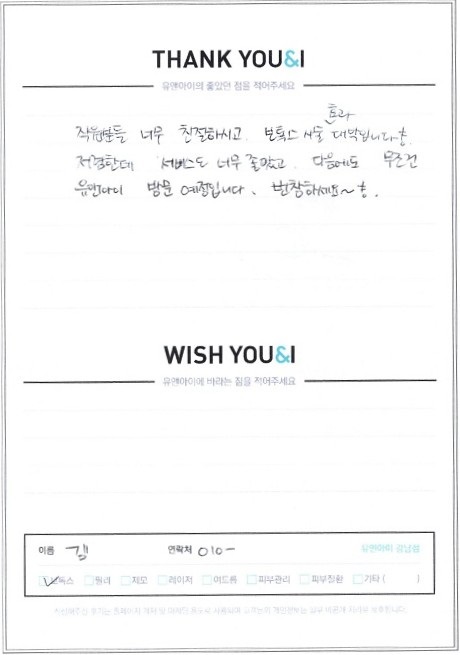 THANK YOU&I
유앤아이의 좋았던 점을 적어주세요
효과
직원분들 너무 친절하시고. 보톡스 시술 대박입니다.
저렴한데 서비스도 너무 좋았고. 다음에도 무조건
유앤아이 방문 예정입니다. 번창하세요~
WISH YOU&I
유앤아이에 바라는 점을 적어주세요
이름 김 연락처 010- 유앤아이 강남점
보톡스 필러 제모 레이저 여드름 피부관리 피부질환 기타 ( )